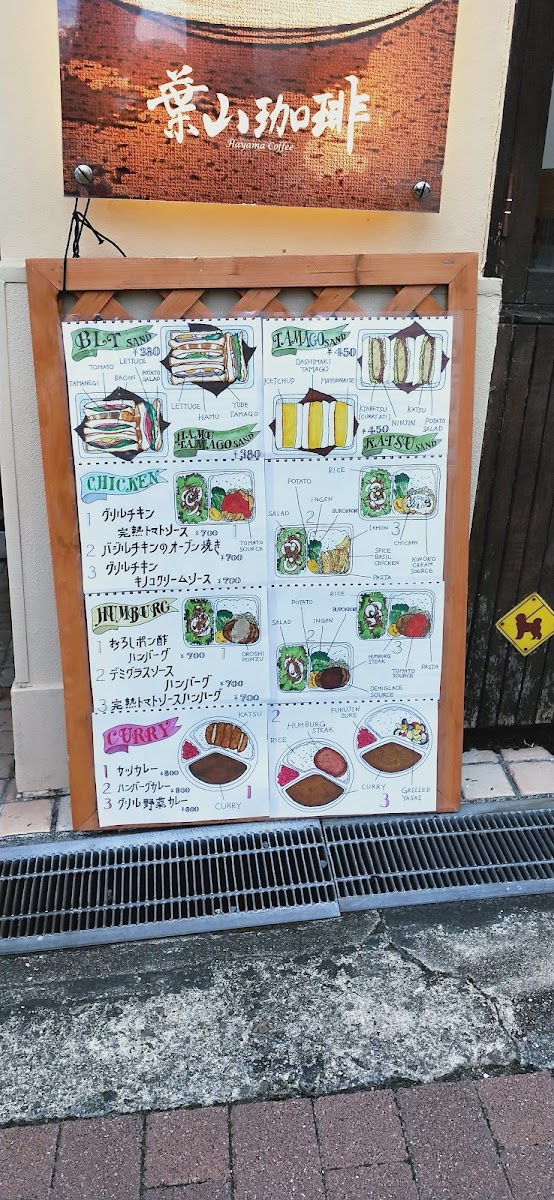 葉山珈琲
Hayama Coffee
BLT SAND
¥380
LETTUCE
TOMATO
BACON
POTATO SALAD
TAMANEGI
LETTUCE
HAMU
YUDE TAMAGO
HAMU TAMAGO SAND
¥380
TAMAGO SAND
¥450
DASHIMAKI TAMAGO
KETCHUP
MAYONNAISE
KYABETSU
NINJIN
KATSU
POTATO SALAD
¥450
KATSU SAND
CHICKEN
1 グリルチキン
完熟トマトソース ¥700
2 バジルチキンのオーブン焼き
¥700
3 グリルチキン
キノコクリームソース ¥700
1
TOMATO SOURCE
RICE
POTATO
INGEN
BUROKKORI
SALAD
2
LEMON
3
CHICKEN
SPICE BASIL CHICKEN
KINOKO CREAM SOURCE
PASTA
HUMBURG
1 おろしポン酢
ハンバーグ ¥700
2 デミグラスソース
ハンバーグ ¥700
3 完熟トマトソースハンバーグ ¥700
1
OROSHI PONZU
RICE
POTATO
INGEN
BUROKKORI
SALAD
2
3
HUMBURG STEAK
TOMATO SOURCE
PASTA
DEMIGLACE SOURCE
CURRY
1 カツカレー ¥800
2 ハンバーグカレー ¥800
3 グリル野菜カレー ¥800
KATSU
1
CURRY
2
HUMBURG STEAK
FUKUJIN ZUKE
RICE
CURRY
3
GRILLED YASAI